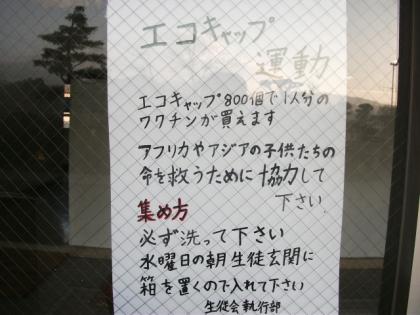 エコキャップ
運動
エコキャップ800個で1人分の
ワクチンが買えます
アフリカやアジアの子供たちの
命を救うために協力して
下さい
集め方
必ず洗って下さい
水曜日の朝生徒玄関に
箱を置くので入れて下さい
生徒会執行部